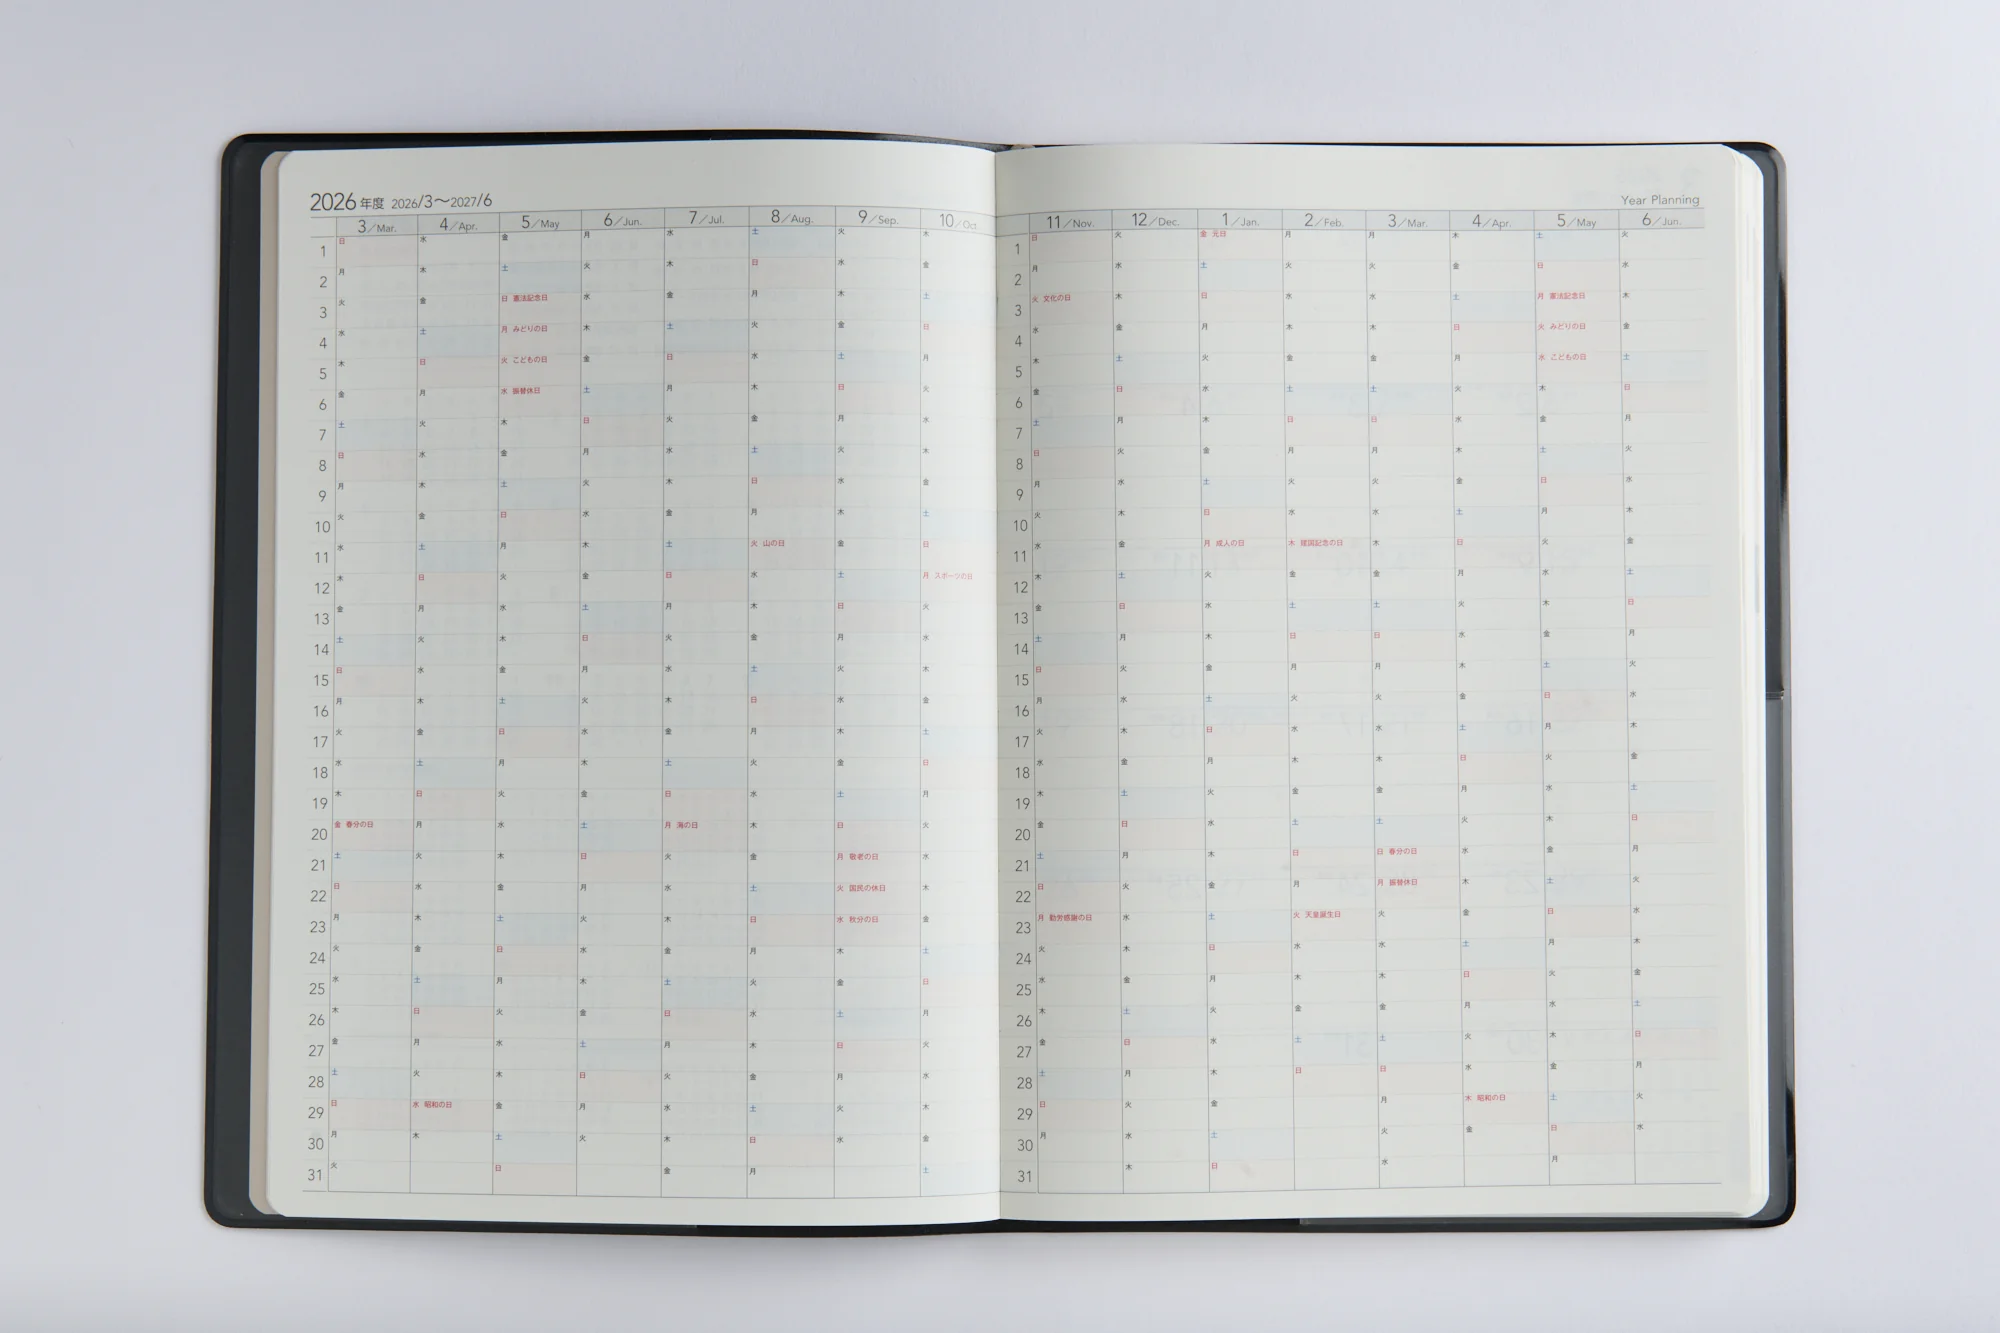 2026年度 2026/3〜2027/6
3/Mar. 4/Apr. 5/May 6/Jun. 7/Jul. 8/Aug. 9/Sep. 10/Oct.
1 日 水 金 月 水 土 火 木
2 月 木 土 火 木 日 水 金
3 火 金 日 憲法記念日 水 金 月 木 土
4 水 土 月 みどりの日 木 土 火 金 日
5 木 日 火 こどもの日 金 日 水 土 月
6 金 月 水 振替休日 土 月 木 日 火
7 土 火 木 日 火 金 月 水
8 日 水 金 月 水 土 火 木
9 月 木 土 火 木 日 水 金
10 火 金 日 水 金 月 木 土
11 水 土 月 木 土 火 山の日 金 日
12 木 日 火 金 日 水 土 月 スポーツの日
13 金 月 水 土 月 木 日 火
14 土 火 木 日 火 金 月 水
15 日 水 金 月 水 土 火 木
16 月 木 土 火 木 日 水 金
17 火 金 日 水 金 月 木 土
18 水 土 月 木 土 火 金 日
19 木 日 火 金 日 水 土 月
20 金 春分の日 月 水 土 月 海の日 木 日 火
21 土 火 木 日 火 金 月 敬老の日 水
22 日 水 金 月 水 土 火 国民の休日 木
23 月 木 土 火 木 日 水 秋分の日 金
24 火 金 日 水 金 月 木 土
25 水 土 月 木 土 火 金 日
26 木 日 火 金 日 水 土 月
27 金 月 水 土 月 木 日 火
28 土 火 木 日 火 金 月 水
29 日 水 昭和の日 金 月 水 土 火 木
30 月 木 土 火 木 日 水 金
31 火 日 金 月 土
Year Planning
11/Nov. 12/Dec. 1/Jan. 2/Feb. 3/Mar. 4/Apr. 5/May 6/Jun.
1 日 火 金 元日 月 月 木 土 火
2 月 水 土 火 火 金 日 水
3 火 文化の日 木 日 水 水 土 月 憲法記念日 木
4 水 金 月 木 木 日 火 みどりの日 金
5 木 土 火 金 金 月 水 こどもの日 土
6 金 日 水 土 土 火 木 日
7 土 月 木 日 日 水 金 月
8 日 火 金 月 月 木 土 火
9 月 水 土 火 火 金 日 水
10 火 木 日 水 水 土 月 木
11 水 金 月 成人の日 木 建国記念の日 木 日 火 金
12 木 土 火 金 金 月 水 土
13 金 日 水 土 土 火 木 日
14 土 月 木 日 日 水 金 月
15 日 火 金 月 月 木 土 火
16 月 水 土 火 火 金 日 水
17 火 木 日 水 水 土 月 木
18 水 金 月 木 木 日 火 金
19 木 土 火 金 金 月 水 土
20 金 日 水 土 土 火 木 日
21 土 月 木 日 日 春分の日 水 金 月
22 日 火 金 月 月 振替休日 木 土 火
23 月 勤労感謝の日 水 土 火 天皇誕生日 火 金 日 水
24 火 木 日 水 水 土 月 木
25 水 金 月 木 木 日 火 金
26 木 土 火 金 金 月 水 土
27 金 日 水 土 土 火 木 日
28 土 月 木 日 日 水 金 月
29 日 火 金 月 木 昭和の日 土 火
30 月 水 土 火 金 日 水
31 木 日 水 月